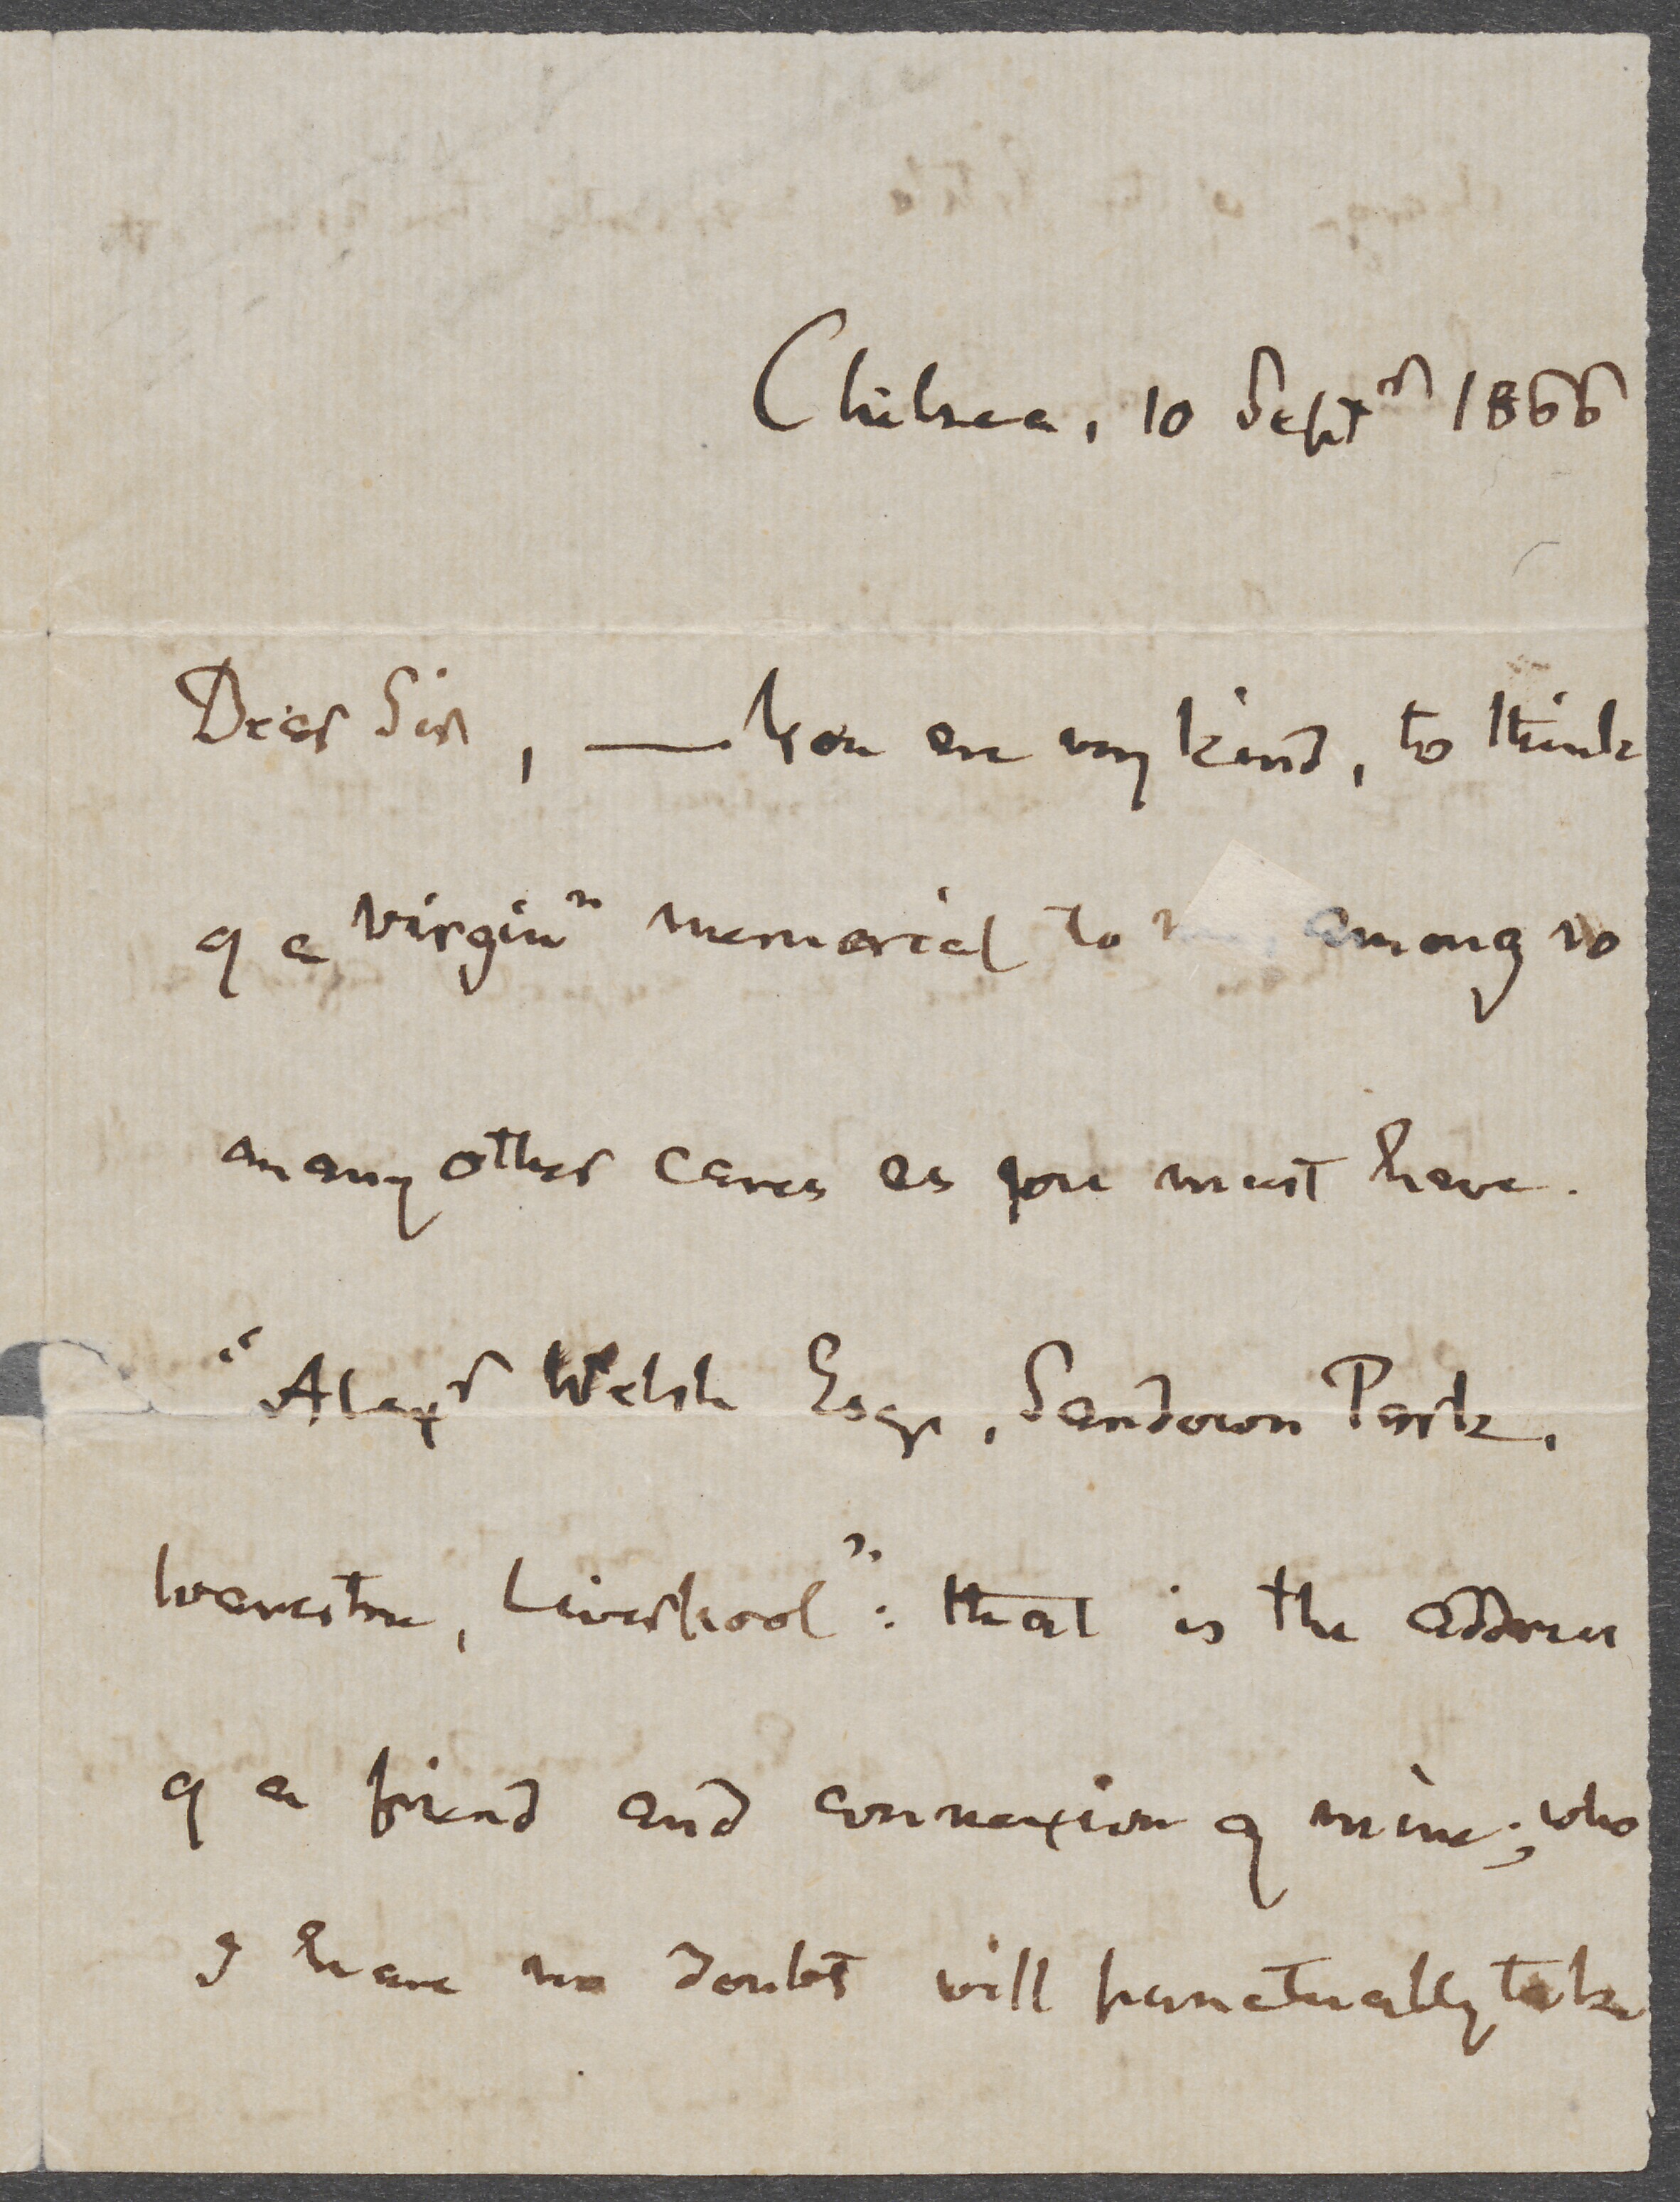 Chelsea, 10 Septr 1866
Dear Sir, — You are very kind, to think
of a Virginn memorial to among so
many other cares as you must have.
"Alexr Welsh Esqr, Sandown Park,
Wavertree, Liverpool": that is the address
of a friend and connexion of mine; who
I have no doubt will punctually take